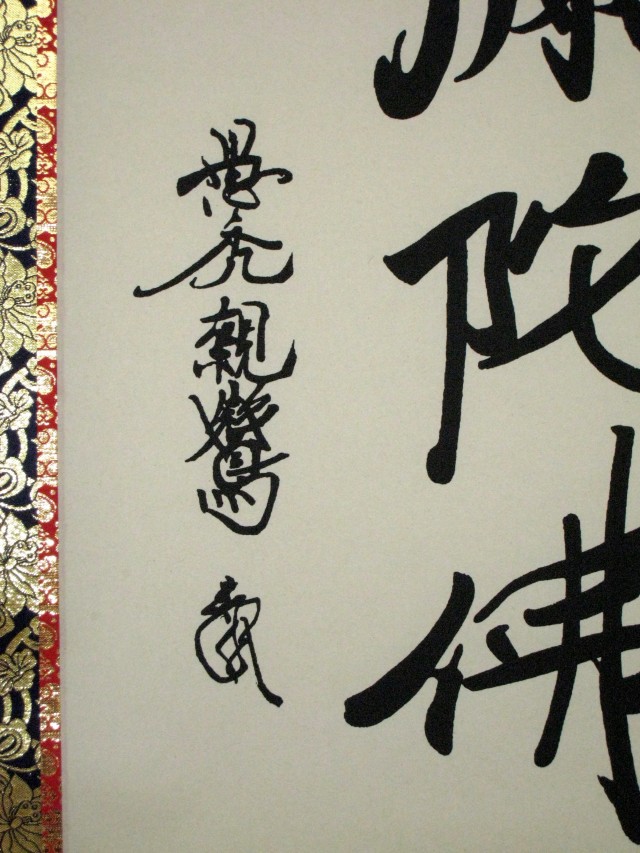 陀佛
愚禿親鸞